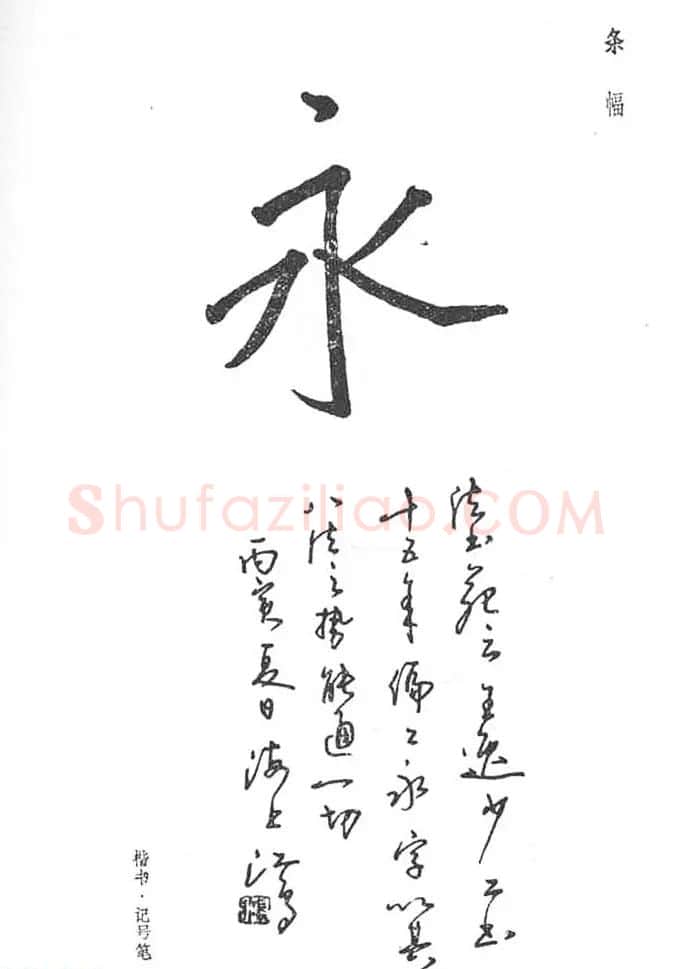 条幅
永
法书苑云王逸少工书
十五年偏工永字以其
八法之势能通一切
丙寅夏日海上江鸟
楷书·记号笔
Shufaziliao.COM